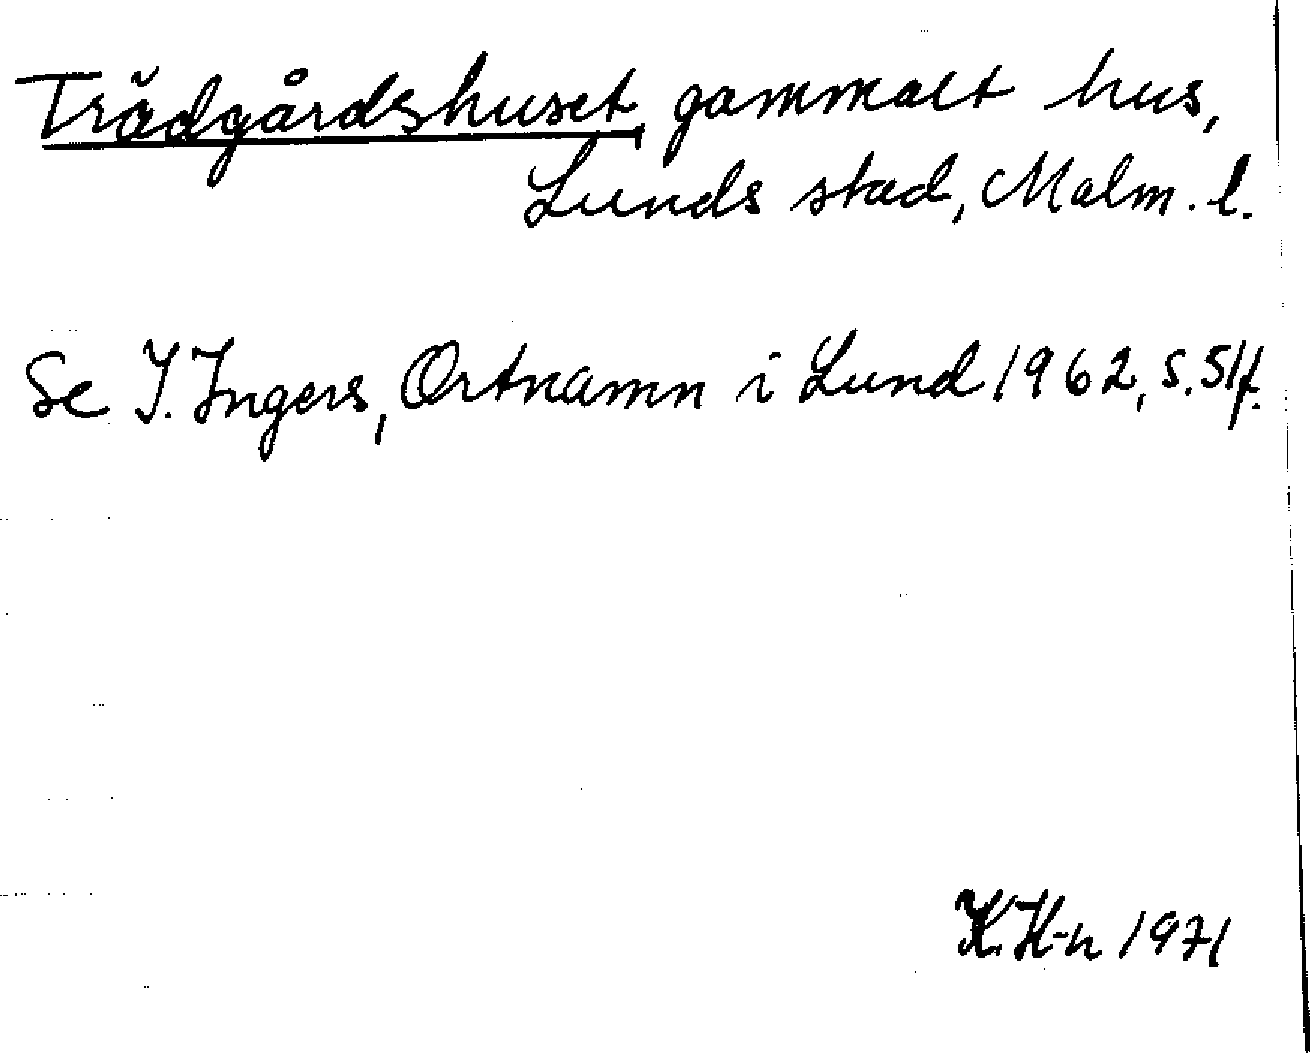 Trädgårdshuset, gammalt hus,
Lunds stad, Malm. l.
Se I. Ingers, Ortnamn i Lund 1962, s. 51f.
K. H-n 1971